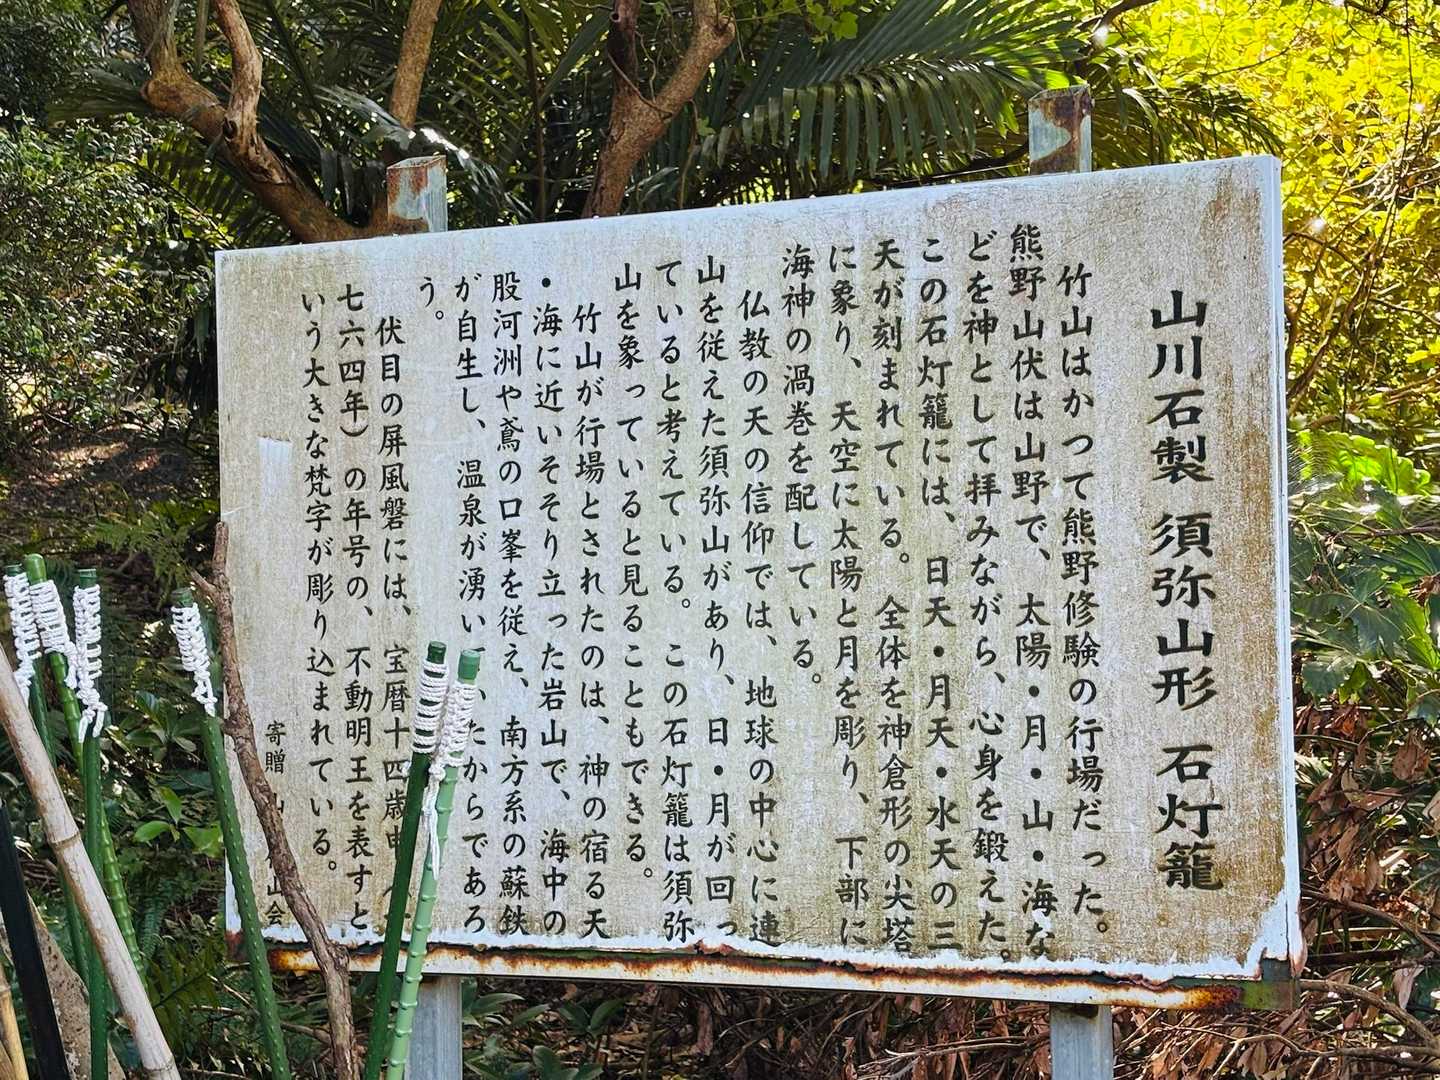 山川石製 須弥山形 石灯籠
竹山はかつて熊野修験の行場だった。
熊野山伏は山野で、太陽・月・山・海な
どを神として拝みながら、心身を鍛えた。
この石灯籠には、日天・月天・水天の三
天が刻まれている。全体を神倉形の尖塔
に象り、天空に太陽と月を彫り、下部に
海神の渦巻を配している。
仏教の天の信仰では、地球の中心に連
山を従えた須弥山があり、日・月が回っ
ていると考えている。この石灯籠は須弥
山を象っていると見ることもできる。
竹山が行場とされたのは、神の宿る天
・海に近いそそり立った岩山で、海中の
股河洲や鳶の口峯を従え、南方系の蘇鉄
が自生し、温泉が湧いていたからであろ
う。
伏目の屏風磐には、宝暦十四歳申
七六四年)の年号の、不動明王を表すと
いう大きな梵字が彫り込まれている。
寄贈 山会